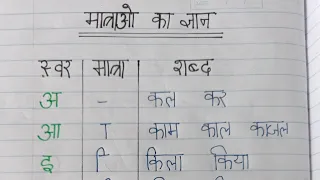 मात्राओ का ज्ञान
स्वर मात्रा शब्द
अ - कल कर
आ ा काम काल काजल
इ ि किला किया